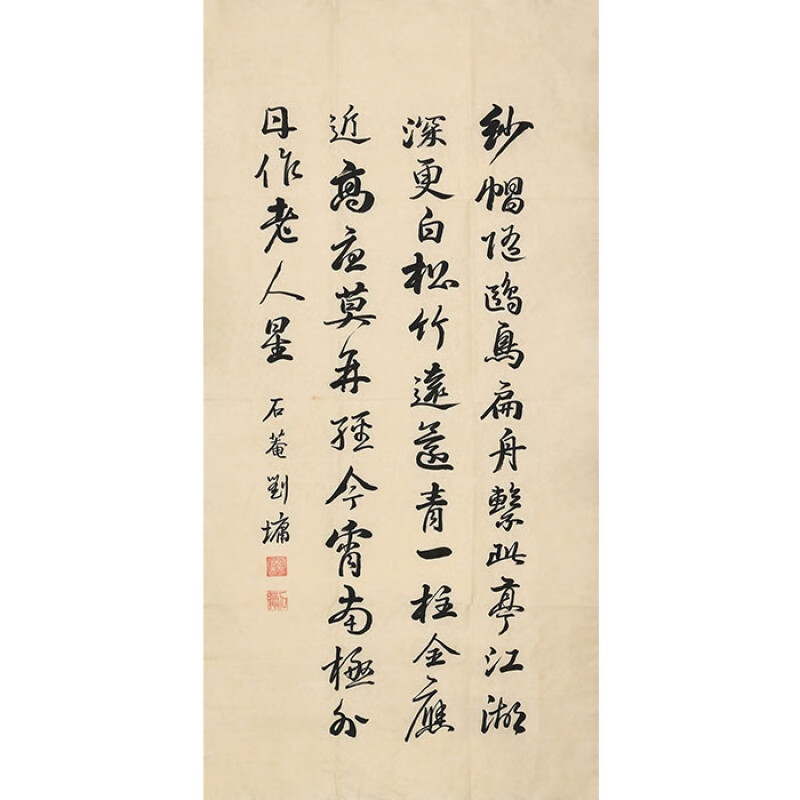 紗帽随鷗鳥扁舟繫此亭江湖
深更白松竹遠還青一柱全應
近高唐莫再經今宵南極外
甘作老人星 石菴劉墉